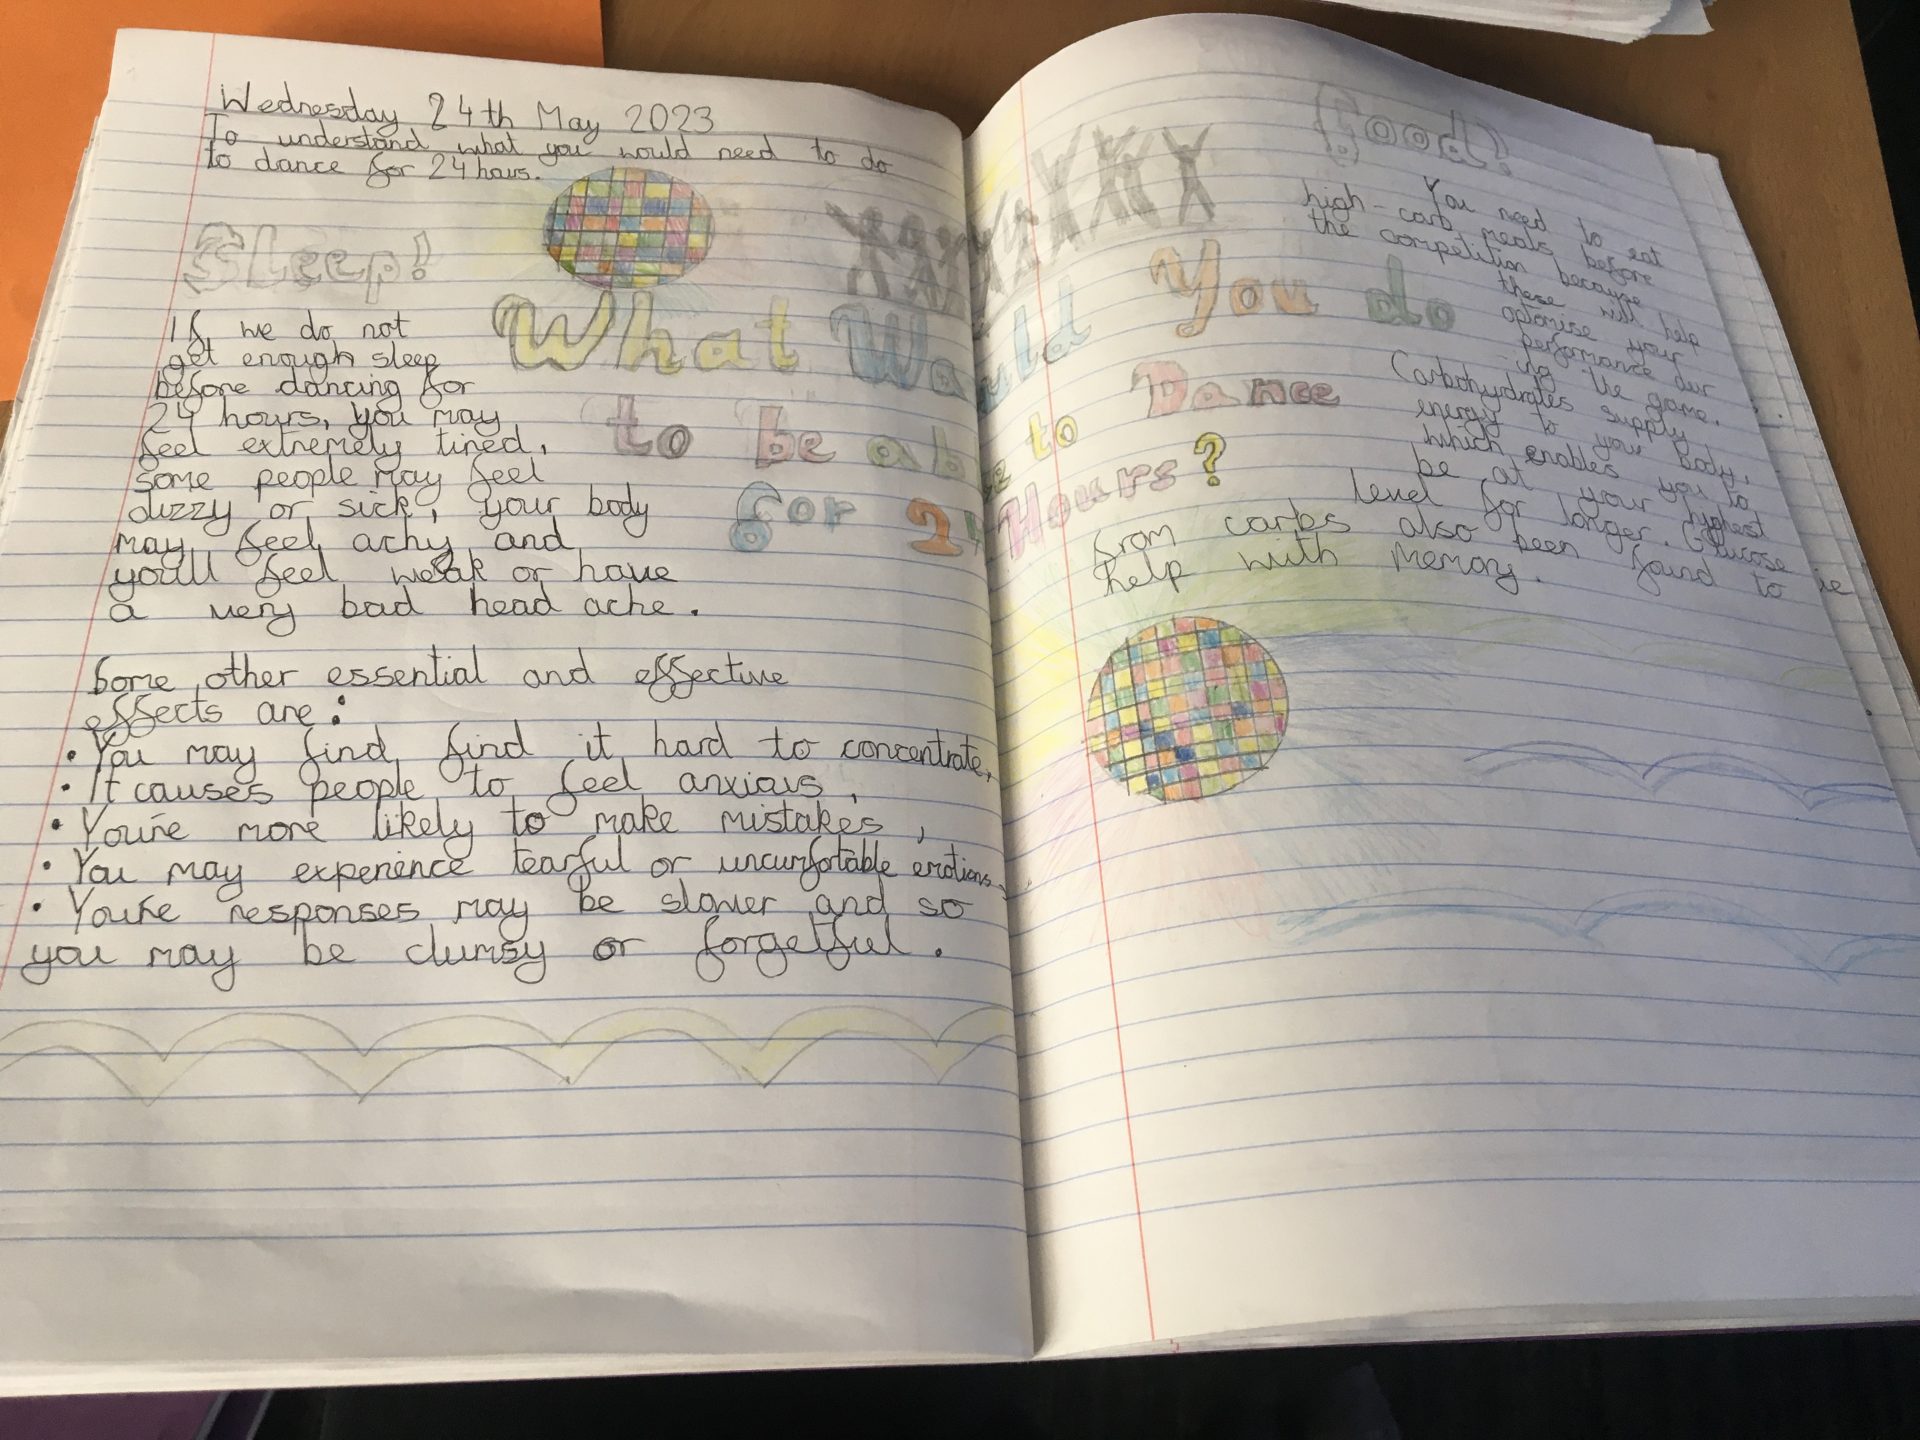 Wednesday 24th May 2023
To understand what you would need to do
to dance for 24 hours.
Sleep!
If we do not
get enough sleep
before dancing for
24 hours, you may
feel extremely tired,
some people may feel
dizzy or sick, your body
may feel achy and
you'll feel weak or have
a very bad head ache.
Some other essential and effective
effects are:
• You may find find it hard to concentrate,
• It causes people to feel anxious,
• You're more likely to make mistakes,
• You may experience tearful or uncumfortable emotions
• You're responses may be slower and so
you may be clumsy or forgetful.
What Would You do
to be able to Dance
for 24 Hours?
Food!
You need to eat
high-carb meals before
the competition because
these will help
optomise your
performance dur
ing the game.
Carbohydrates supply
energy to your body,
which enables you to
be at your highest
level for longer. Glucose
from carbs also been found to
help with Memory.